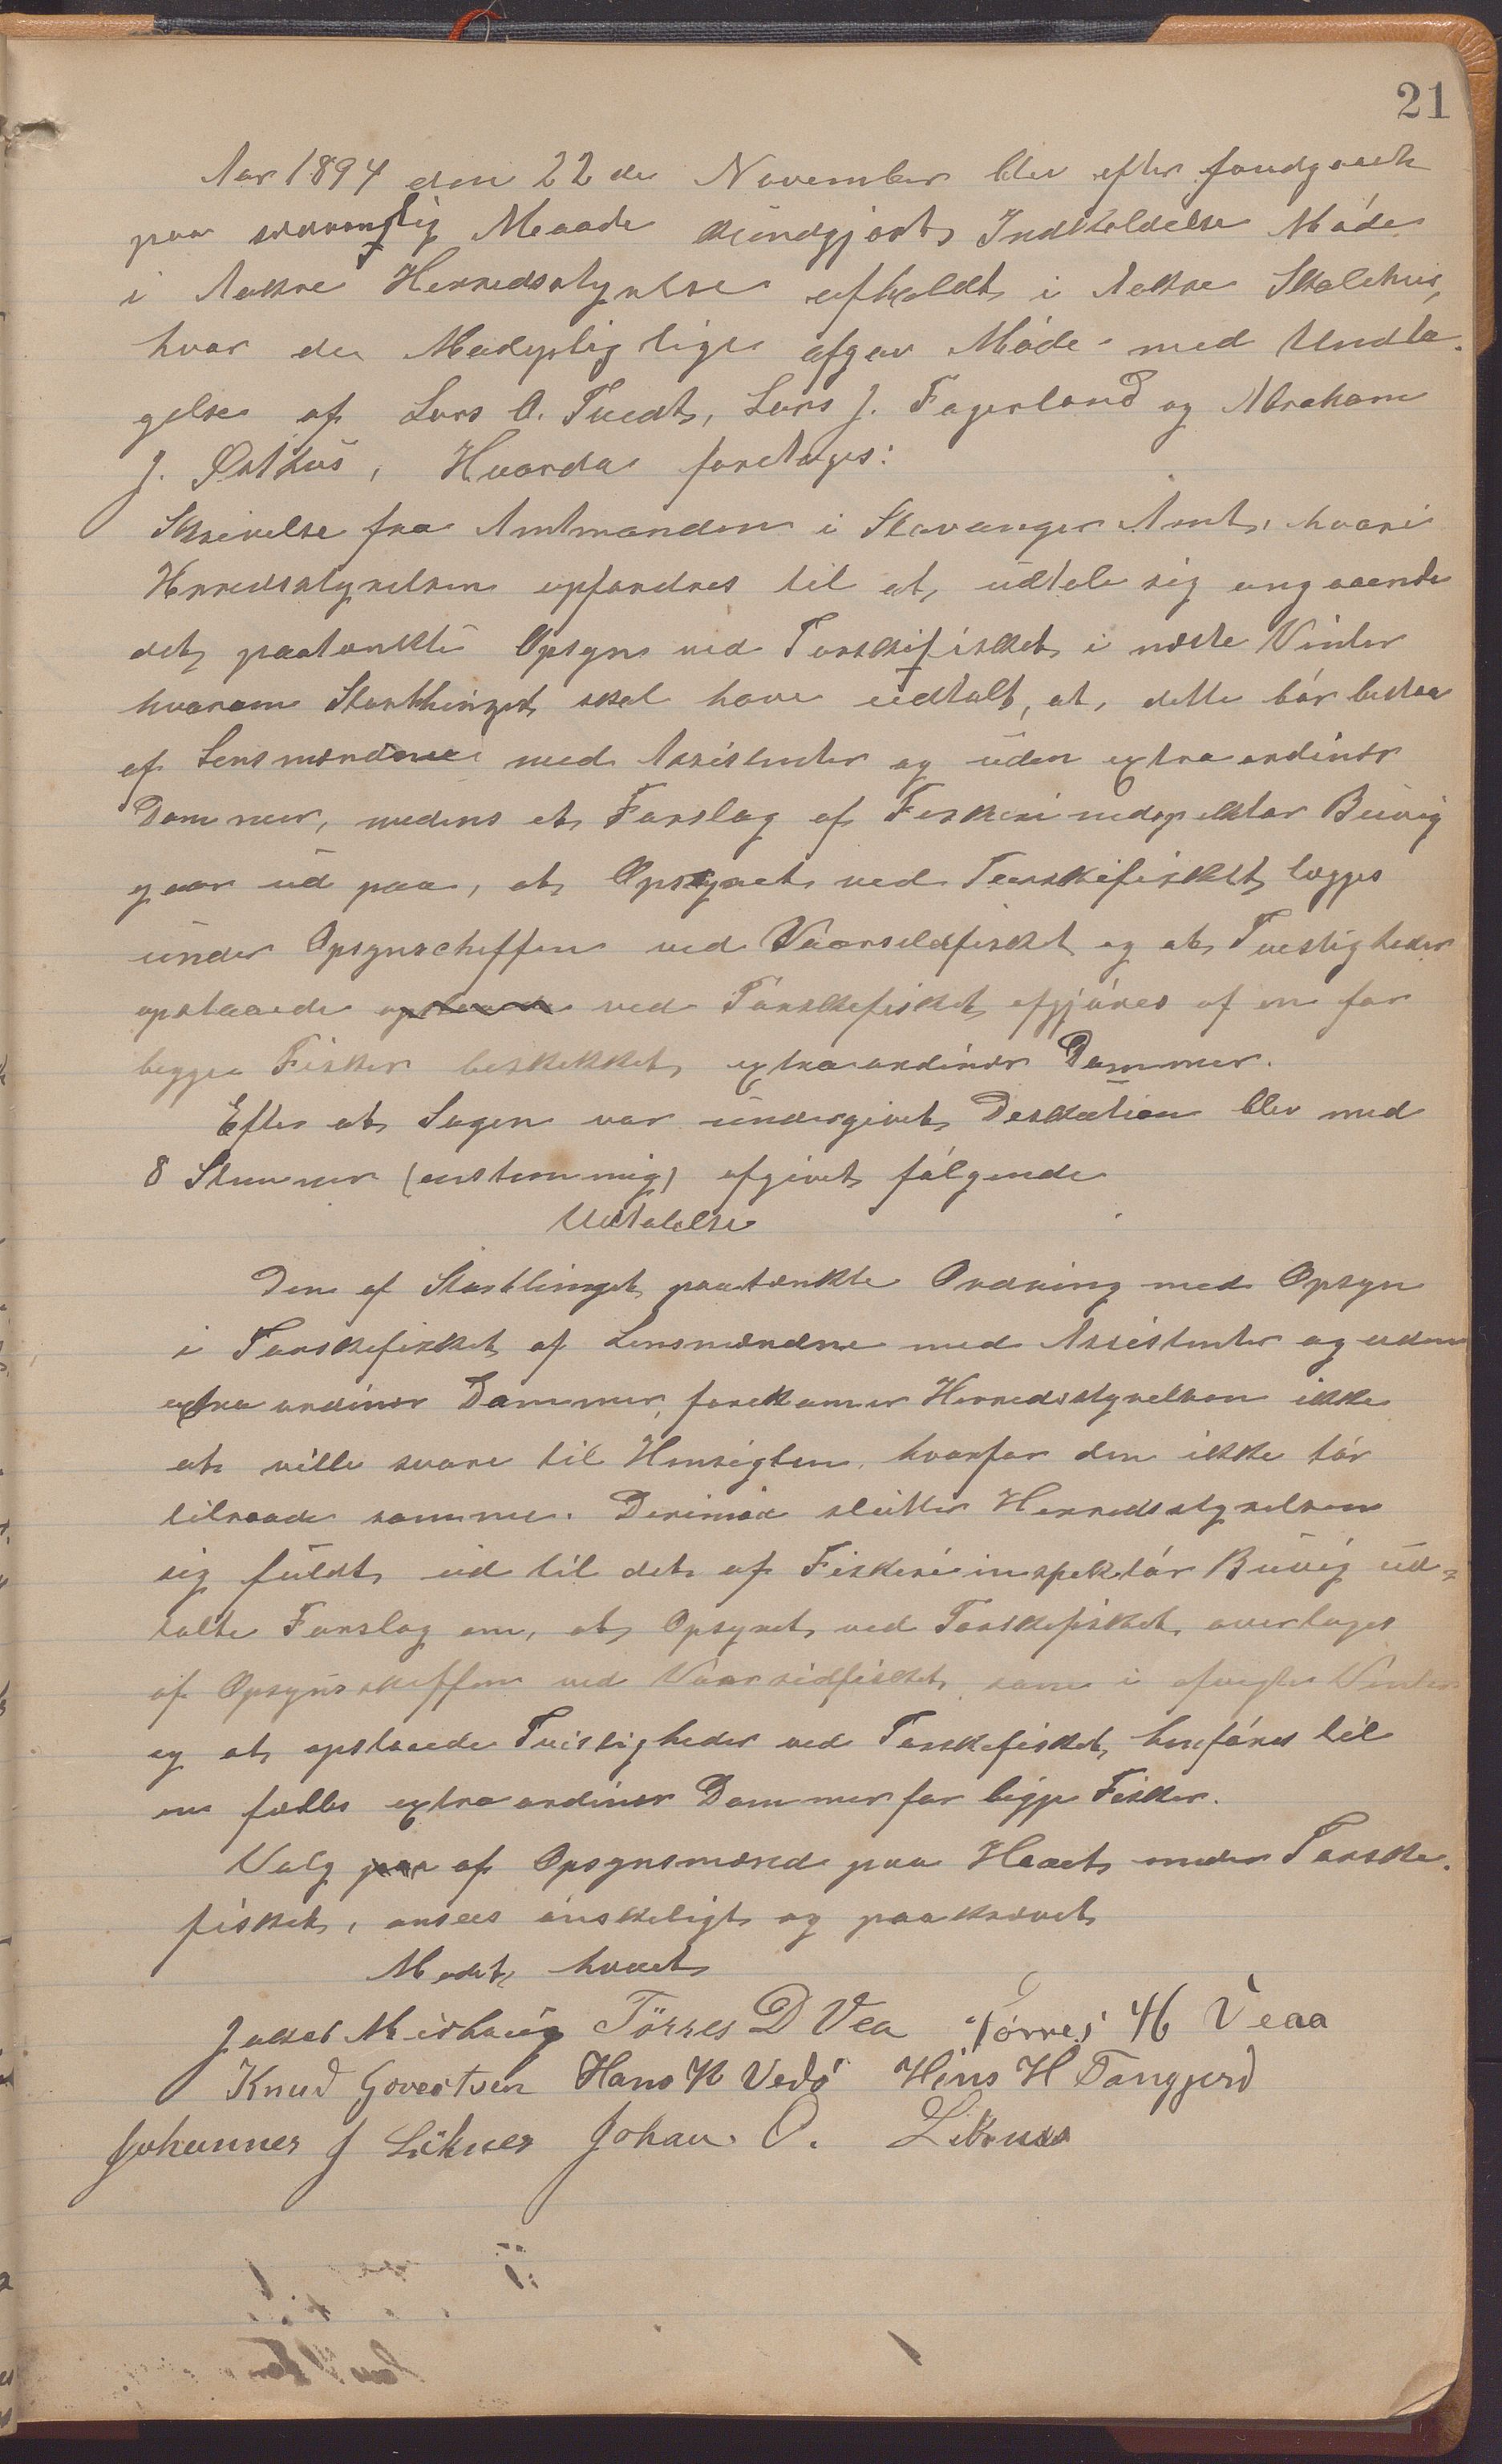 21
Aar 1894 den 22de November blev efter forudgaaende
paa sedvanlig Maade kundgjort Indkaldelse Møde
i Aakre Herredsstyrelse afholdt i Aakre Skolehus,
hvor de Mødepligtige afgav Møde med Undta-
gelse af Lars O. Tvedt, Lars J. Fagerland og Abraham
J. Østhus, Hvorda foretages:
Skrivelse fra Amtmanden i Stavanger Amt, hvori
Herredsstyrelsen opfordres til at udtale sig angaaende
det paatænkte Opsyn ved Torskefisket i næste Vinter
hvorom Storthinget skal have udtalt, at dette bør bestaa
af Lensmændene med Assistenter og uden extraordinær
Dommer, medens et Forslag af Fiskeriinspektør Buvig
gaar ud paa, at Opsynet ved Torskefisket lægges
under Opsynscheffen ved Vaarsildfisket og at Tvistigheder
opstaaede ved Torskefisket afgjøres af en for
begge Fisker beskikket extraordinær Dommer.
Efter at Sagen var undergivet Deskution blev med
8 Stemmer (enstemmig) afgivet følgende
Udtalelse
Den af Storthinget paatænkte Ordning med Opsyn
i Torskefisket af Lensmændne med Assistenter og uden
extraordinær Dommer, forekommer Herredsstyrelsen ikke
at ville svare til Hensigten, hvorfor den ikke tør
tilraade samme. Derimod slutter Herredsstyrelsen
sig fuldt ud til det af Fiskeriinspektør Buvig ud-
talte Forslag om, at Opsynet ved Torskefisket overtages
af Opsynsskeffen ved Vaarsildfisket som i afvigte Vinter
og at opstaaede Tvistigheder ved Torskefisket henføres til
en fælles extraordinær Dommer for begge Fisker.
Valg paa af Opsynsmænd paa Havet under Torske-
fisket, ansees ønskeligt og paakrævet
Mødet hævet
Jakob Midhaug Törres D Vea Tørres H Veaa
Knud Govertsen Hans K Vedø Hans H Tangjerd
Johannes J Liknes Johan O. Liknes